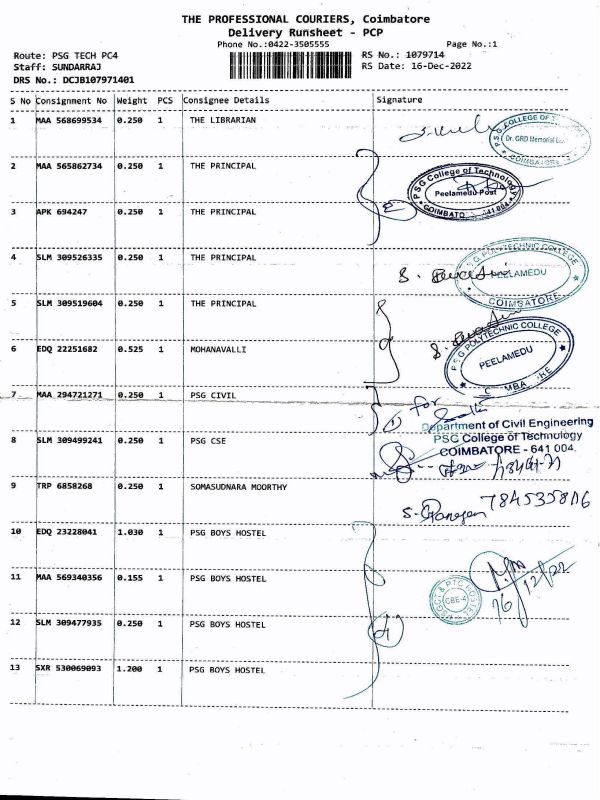 THE PROFESSIONAL COURIERS, Coimbatore
Delivery Runsheet - PCP
Phone No.:0422-3505555
Page No.:1
Route: PSG TECH PC4
RS No.: 1079714
Staff: SUNDARRAJ
RS Date: 16-Dec-2022
DRS No.: DCJB107971401
S No Consignment No Weight PCS Consignee Details Signature
1 MAA 568699534 0.250 1 THE LIBRARIAN
PSG COLLEGE OF
Dr. GRD Memorial
COIMBATORE
2 MAA 565862734 0.250 1 THE PRINCIPAL
PSG College of Technology
Peelamedu Post
COIMBATORE 641 004
3 APK 694247 0.250 1 THE PRINCIPAL
4 SLM 309526335 0.250 1 THE PRINCIPAL
PSG POLYTECHNIC COLLEGE
PEELAMEDU
COIMBATORE
5 SLM 309519604 0.250 1 THE PRINCIPAL
PSG POLYTECHNIC COLLEGE
PEELAMEDU
6 EDQ 22251682 0.525 1 MOHANAVALLI
7 MAA 294721271 0.250 1 PSG CIVIL
for
Department of Civil Engineering
PSG College of Technology
COIMBATORE - 641 004.
8 SLM 309499241 0.250 1 PSG CSE
9 TRP 6858268 0.250 1 SOMASUDNARA MOORTHY
10 EDQ 23228041 1.030 1 PSG BOYS HOSTEL
11 MAA 569340356 0.155 1 PSG BOYS HOSTEL
16/12/22
CBE-4
12 SLM 309477935 0.250 1 PSG BOYS HOSTEL
13 SXR 530069093 1.200 1 PSG BOYS HOSTEL